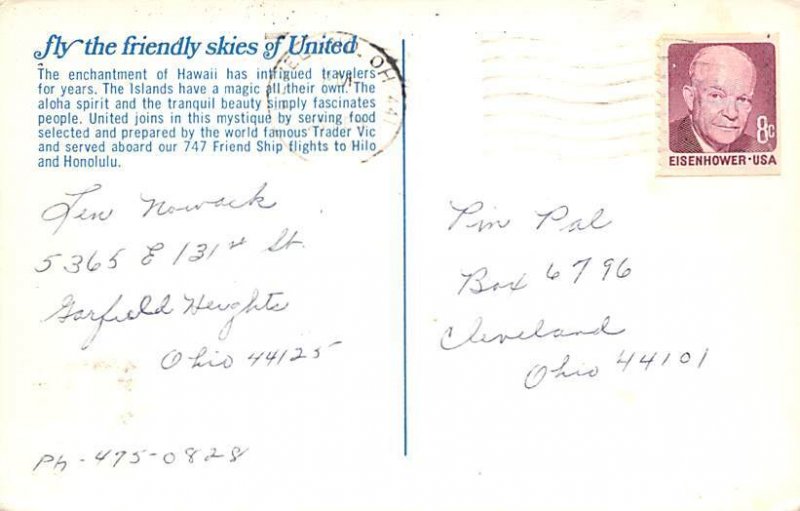 fly the friendly skies of United
The enchantment of Hawaii has intrigued travelers
for years. The Islands have a magic all their own. The
aloha spirit and the tranquil beauty simply fascinates
people. United joins in this mystique by serving food
selected and prepared by the world famous Trader Vic
and served aboard our 747 Friend Ship flights to Hilo
and Honolulu.
Len Nowack
5365 E 131st St.
Garfield Heights
Ohio 44125
Ph - 475-0828
OH 441
8c
EISENHOWER·USA
Pin Pal
Box 6796
Cleveland
Ohio 44101